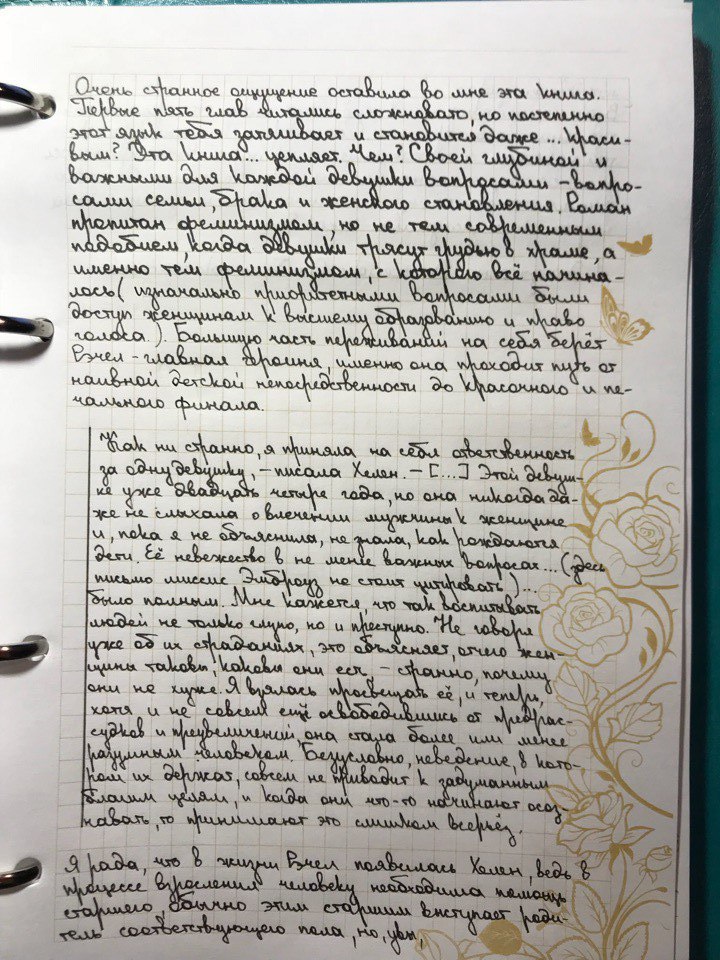 Очень странное ощущение оставила во мне эта книга.
Первые пять глав читались сложновато, но постепенно
этот язык тебя затягивает и становится даже... краси-
вым? Эта книга... цепляет. Чем? Своей глубиной и
важными для каждой девушки вопросами – вопро-
сами семьи, брака и женского становления. Роман
пропитан феминизмом, но не тем современным
подобием, когда девушки трясут грудью в храме, а
именно тем феминизмом, с которого всё начина-
лось (изначально приоритетными вопросами были
доступ женщинам к высшему образованию и право
голоса.). Большую часть переживаний на себя берёт
Рэчел – главная героиня, именно она проходит путь от
наивной детской непосредственности до красочного и пе-
чального финала.
"Как ни странно, я приняла на себя ответственность
за одну девушку, – писала Хелен. – [...] Этой девуш-
ке уже двадцать четыре года, но она никогда да-
же не слыхала о влечении мужчины к женщине
и, пока я не объяснила, не знала, как рождаются
дети. Её невежество в не менее важных вопросах... (здесь
письмо миссис Эмброуз не стоит цитировать)...
было полным. Мне кажется, что так воспитывать
людей не только глупо, но и преступно. Не говоря
уже об их страданиях, это объясняет, отчего жен-
щины таковы, каковы они есть, – странно, почему
они не хуже. Я взялась просвещать её, и теперь,
хотя и не совсем ещё освободившись от предрас-
судков и преувеличений, она стала более или менее
разумным человеком. Безусловно, неведение, в кото-
ром их держат, совсем не приводит к задуманным
благим целям, и когда они что-то начинают осоз-
навать, то принимают это слишком всерьёз.
Я рада, что в жизни Рэчел появилась Хелен, ведь в
процессе взросления человеку необходима помощь
старшего, обычно этим старшим выступает роди-
тель соответствующего пола, но, увы,